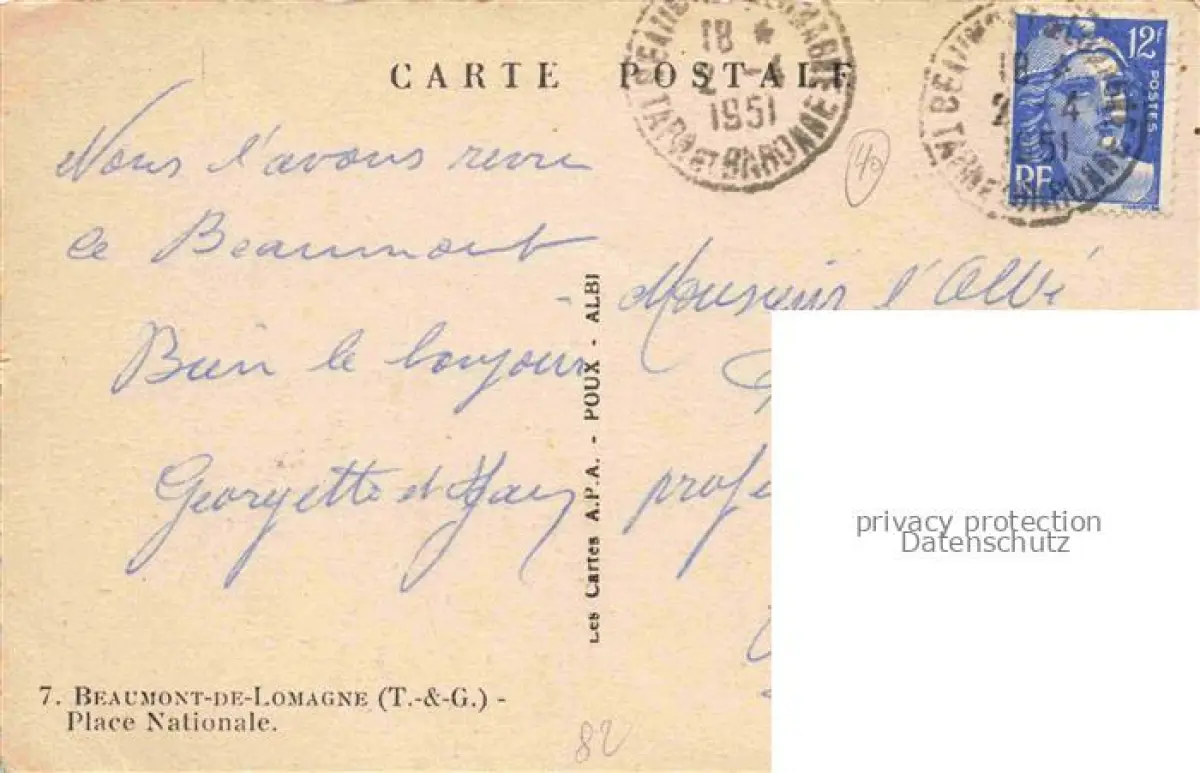 CARTE POSTALE
18 *
2 - 4
1951
TARN ET GARONNE
12F
POSTES
RF
40
Nous l'avons revu
ce Beaumont
Bien le bonjour
Georgette et
Les Cartes A.P.A. - POUX - ALBI
Monsieur l'Abbé
profe
privacy protection
Datenschutz
7. BEAUMONT-DE-LOMAGNE (T.-&-G.) -
Place Nationale.
82